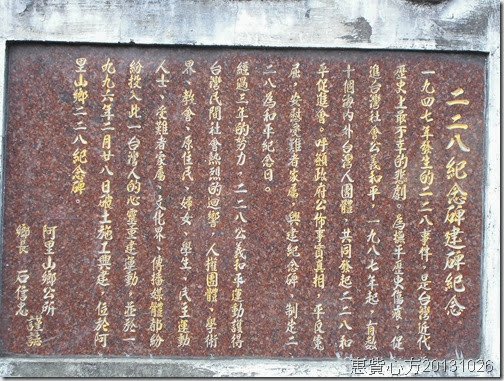 二二八紀念碑建碑紀念
一九四七年發生的二二八事件，是台灣近代
歷史上最不幸的悲劇，為撫平歷史傷痕，促
進台灣社會公義和平，一九八七年起，有數
十個海內外台灣人團體，共同發起二二八和
平促進會。呼籲政府公佈事實真相，平反冤
屈，安慰受難者家屬，興建紀念碑，制定二
二八為和平紀念日。
經過三年的努力，二二八公義和平運動獲得
台灣民間社會熱烈的迴響，人權團體、學術
界、教會、原住民、婦女、學生、民主運動
人士、受難者家屬、文化界、傳播媒體都紛
紛投入此一台灣人的心靈重建運動，並於一
九九六年二月廿八日破土施工興建，位於阿
里山鄉二二八紀念碑。
阿里山鄉公所
鄉長 石信忠 謹誌
惠質心方20131026